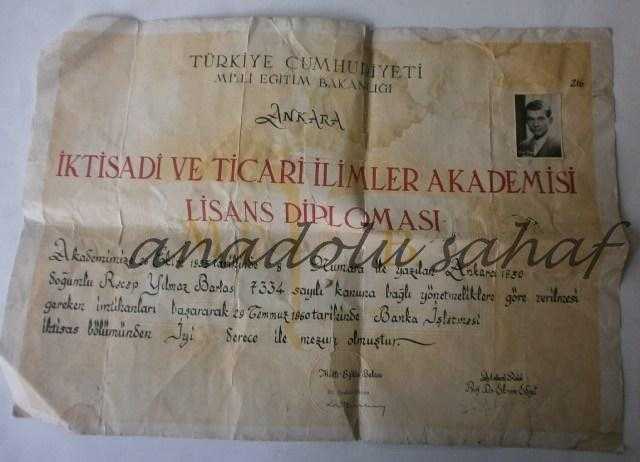 TÜRKİYE CUMHURİYETİ
MİLLİ EĞİTİM BAKANLIĞI
216
ANKARA
İKTİSADİ VE TİCARİ İLİMLER AKADEMİSİ
LİSANS DİPLOMASI
anadolu sahaf
Akademimize tarihinde 8 numara ile yazılan Ankara 1930
doğumlu Recep Yılmaz 7334 sayılı kanuna bağlı yönetmeliklere göre verilmesi
gereken imtihanları başararak 29 Temmuz 1960 tarihinde Banka İşletmesi
ihtisas bölümünden İyi derece ile mezun olmuştur.
Milli Eğitim Bakanı
Akademi Reisi
Prof. Dr.